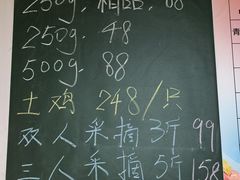 250g. 相品. 68
250g. 48
500g. 88
土鸡 248/只
双人采摘3斤 99
三人采摘5斤 158
青